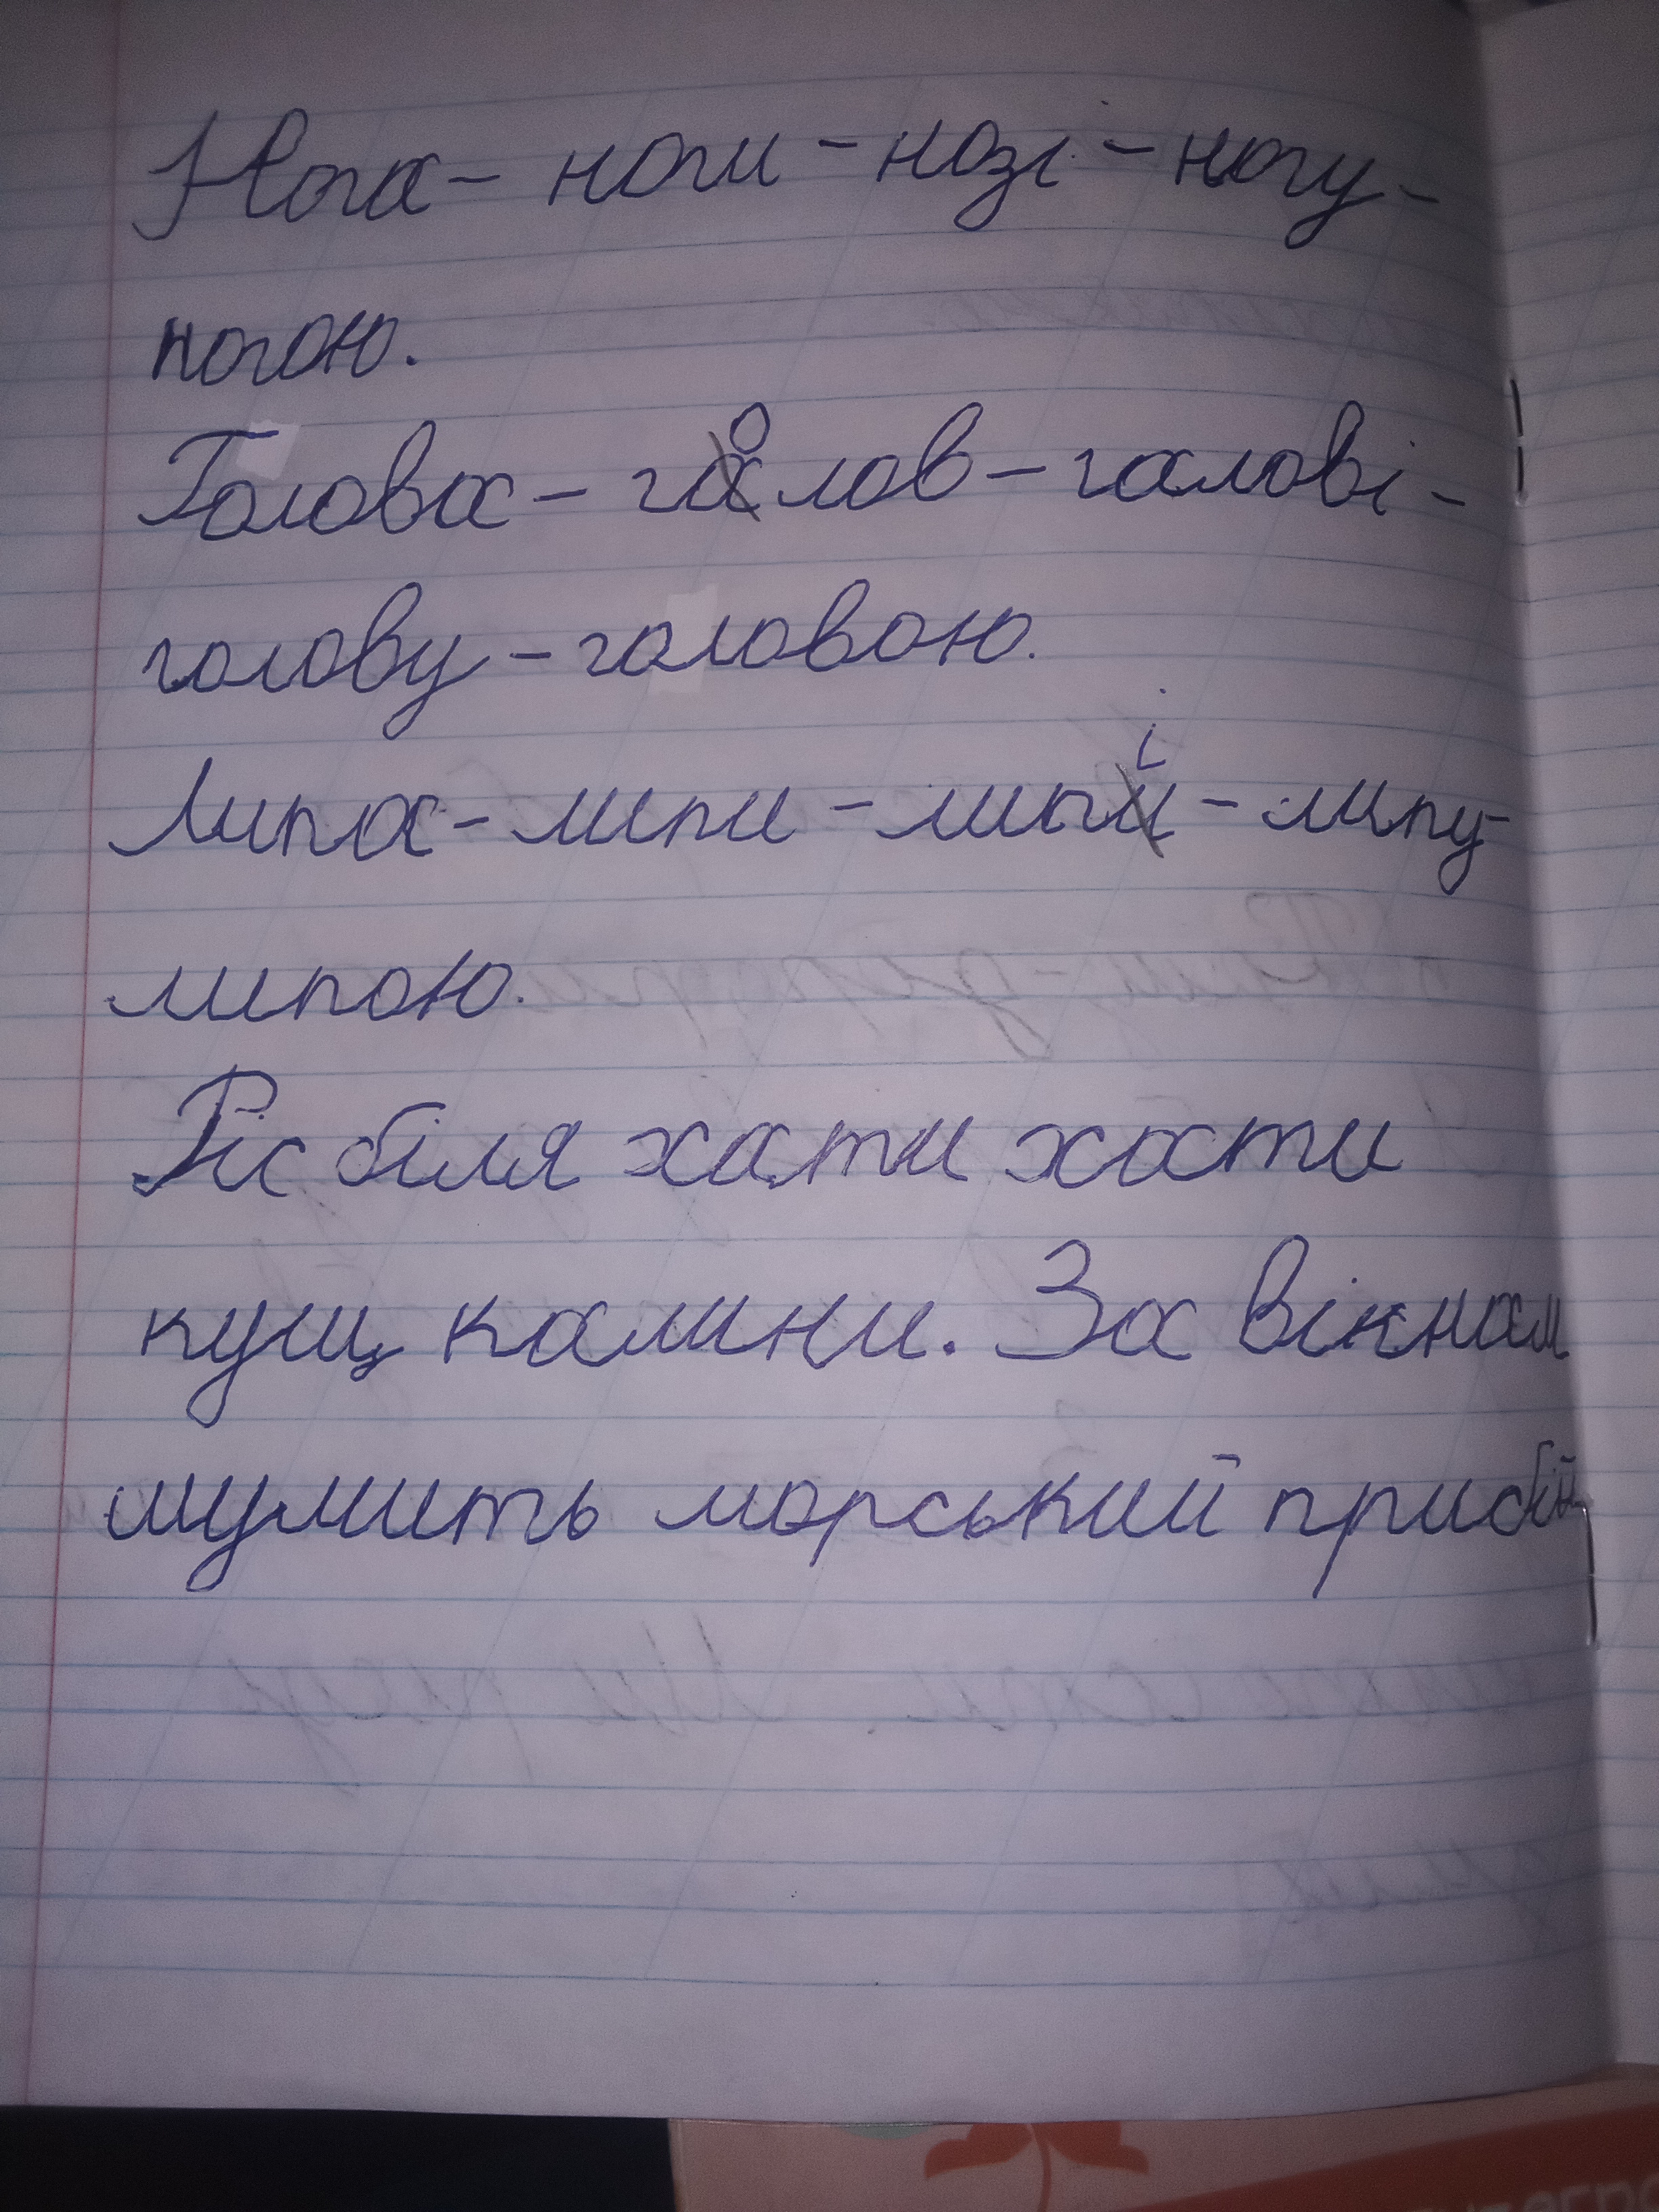 Нога - ноги - нозі - ногу -
ногою.
Голова - голов - галові -
голову - головою.
Липа - липи - липі - липу -
липою.
Ріс біля хати хати
кущ калини. За вікном
шумить морський прибій